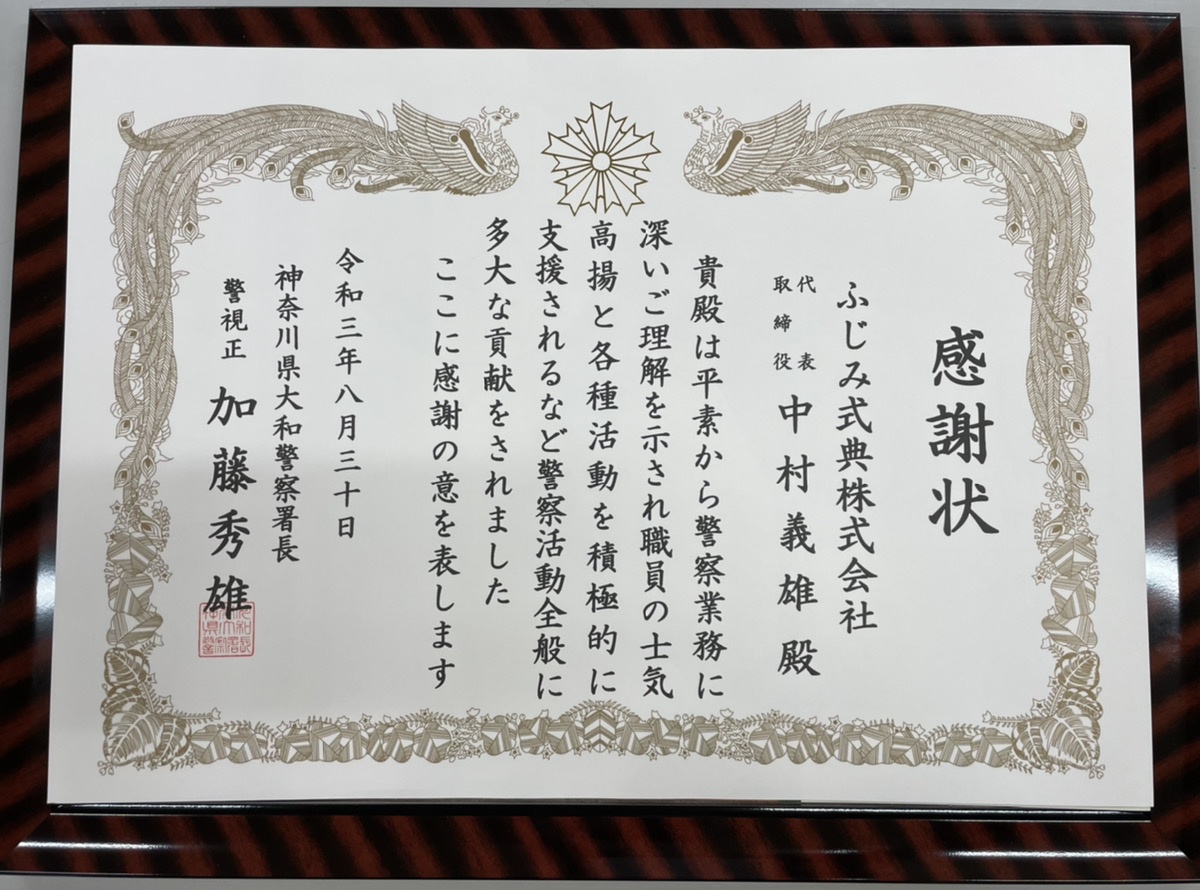 感謝状
ふじみ式典株式会社
代表取締役 中村義雄殿
貴殿は平素から警察業務に
深いご理解を示され職員の士気
高揚と各種活動を積極的に
支援されるなど警察活動全般に
多大な貢献をされました
ここに感謝の意を表します
令和三年八月三十日
神奈川県大和警察署長
警視正 加藤秀雄